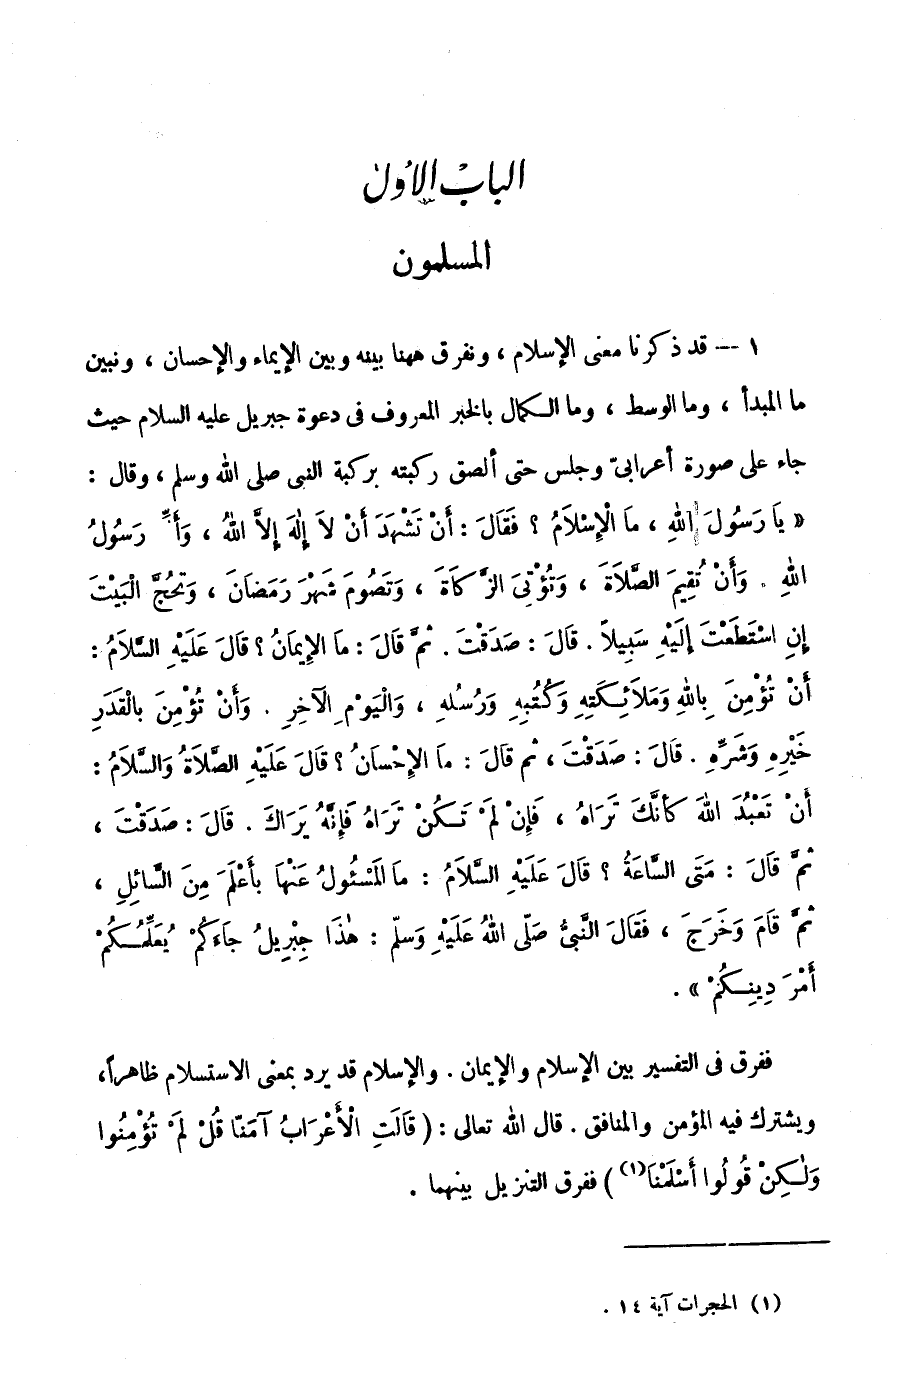 الباب الأول
المسلمون
١ — قد ذكرنا معنى الإسلام ، ونفرق ههنا بينه وبين الإيماء والإحسان ، ونبين
ما المبدأ ، وما الوسط ، وما الكمال بالخبر المعروف فى دعوة جبريل عليه السلام حيث
جاء على صورة أعرابىّ وجلس حتى ألصق ركبته بركبة النبى صلى الله وسلم ، وقال :
« يَا رَسُولَ اللهِ ، ما الْإِسْلاَمُ ؟ فَقَالَ : أَنْ تَشْهَدَ أَنْ لاَ إِلٰهَ إِلاَّ اللهُ ، وَأَنِّى رَسُولُ
اللهِ . وَأَنْ تُقِيمَ الصَّلاَةَ ، وَتُؤْتِىَ الزَّكَاةَ ، وَتَصُومَ شَهْرَ رَمَضَانَ ، وَتَحُجَّ الْبَيْتَ
إِنِ اسْتَطَعْتَ إِلَيْهِ سَبِيلاً . قَالَ : صَدَقْتَ . ثمَّ قَالَ : ما الإِيمَانُ ؟ قَالَ عَلَيْهِ السَّلاَمُ :
أَنْ تُؤْمِنَ بِاللهِ وَمَلاَئِكَتِهِ وَكُتُبِهِ وَرُسُلِهِ ، وَالْيَوْمِ الْآخِرِ . وَأَنْ تُؤْمِنَ بالْقَدَرِ
خَيْرِهِ وَشَرِّهِ . قَالَ : صَدَقْتَ ، ثم قالَ : ما الإحْسانُ ؟ قالَ عَلَيْهِ الصَّلاَةُ وَالسَّلاَمُ :
أَنْ تَعْبُدَ اللهَ كأَنَّكَ تَرَاهُ ، فَإِنْ لمَ ْتَكُنْ تَرَاهُ فَإِنَّهُ يَرَاكَ . قَالَ : صَدَقْتَ ،
ثمَّ قَالَ : مَتَى السَّاعَةُ ؟ قَالَ عَلَيْهِ السَّلاَمُ : ما المَسْئُولُ عَنْهَا بأَعْلَمَ مِنَ السَّائِلِ ،
ثمَّ قَامَ وَخَرَجَ ، فَقَالَ النَّبىُّ صَلّى اللهُ عَلَيْهِ وَسلّم : هٰذَا جِبْرِيلُ جاءَكُمْ يُعَلِّمُكُمْ
أَمْرَ دِينِكُمْ » .
ففرق فى التفسير بين الإسلام والإيمان . والإسلام قد يرد بمعنى الاستسلام ظاهراً،
ويشترك فيه المؤمن والمنافق . قال الله تعالى : ( قَالَتِ الْأَعْرَابُ آمَنَّا قُلْ لمَ ْتُؤْمِنُوا
وَلٰكِنْ قُولُوا أَسْلَمْنَا(١) ) ففرق التنزيل بينهما .
(١) الحجرات آية ١٤ .